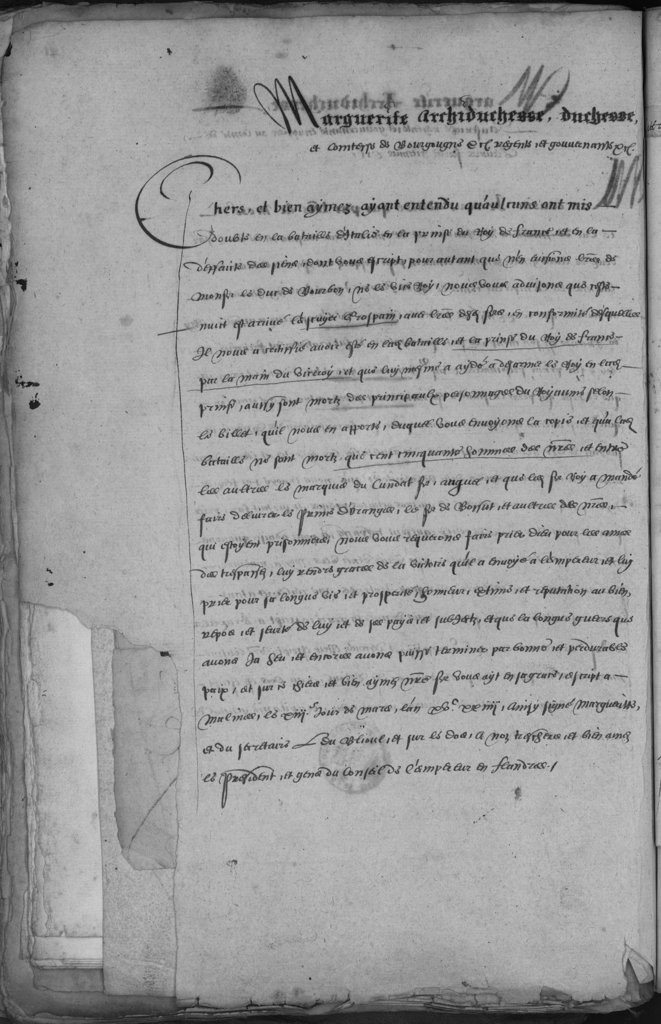 Marguerite Archiduchesse, duchesse,
et Comtesse de Bourgougne &c. regente, et gouvernante &c.
Chers, et bien aymez, ayant entendu qu'aulcuns ont mis
doubte en la bataille d'Italie en la prinse du Roy de France, et en la
deffaite des siens, dont vous escript, pour autant que n'en avions lres de
Monsr. le duc de Bourbon, ne le vice Roy, nous vous advisons que ceste
nuit est arrivé l'escuyer Grospain, avec lres des sre, en conformité desquelles
Il nous a certiffié avoir esté en lad bataille, et la prinse du Roy de France
par la main du viceroy, et que luy mesme a aydé a desarmer le Roy en lad
prinse, aussy sont mortz des principaulx personnaiges du Royaume selon
le billet, qu'il nous en apporte, duquel vous envoyons la copie, et qu'a lad
bataille ne sont mortz que cent cinquante hommes des nres, et entre
les aultres le marquis de et que led sr Roy a mandé
faire delivrer le Prince d'Oranges, le sr de Bossut, et aultres des nres,
qui estoyent prisonniers, nous vous requerons faire prier dieu pour les ames
des trespassez, luy rendre graces de la victoire qu'il a envoyé a l'empereur, et luy
prier pour sa longue vie, et prosperité, honneur, estime, et reputation au bien,
repos, et seurté de luy, et de ses pays, et subjectz, et que la longue guerre que
avons Ja heu, et encores avons puisse terminer par bonne, et perdurable
paix, et sur ce chiers, et bien aymez nre sr vous ayt en sa grace, escript a
Malines, le xiiij.e Jour de mars, l'an xvc. xxiiij, Ainsy signé Marguerite,
et du secretaire Du Blioul, et sur le dos, A noz treschiers, et bien amez
les president, et gens du Conseil de l'empereur en flandres./